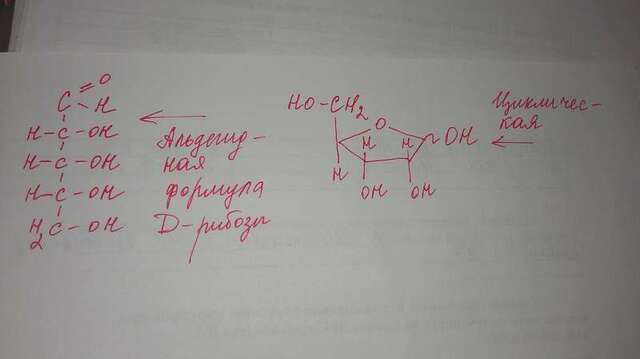 C=O
H
H-C-OH
H-C-OH
H-C-OH
H2C-OH
Альдегид-
ная
формула
D-рибозы
HO-CH2
O
H H ~OH
H
OH OH
Цикличес-
кая